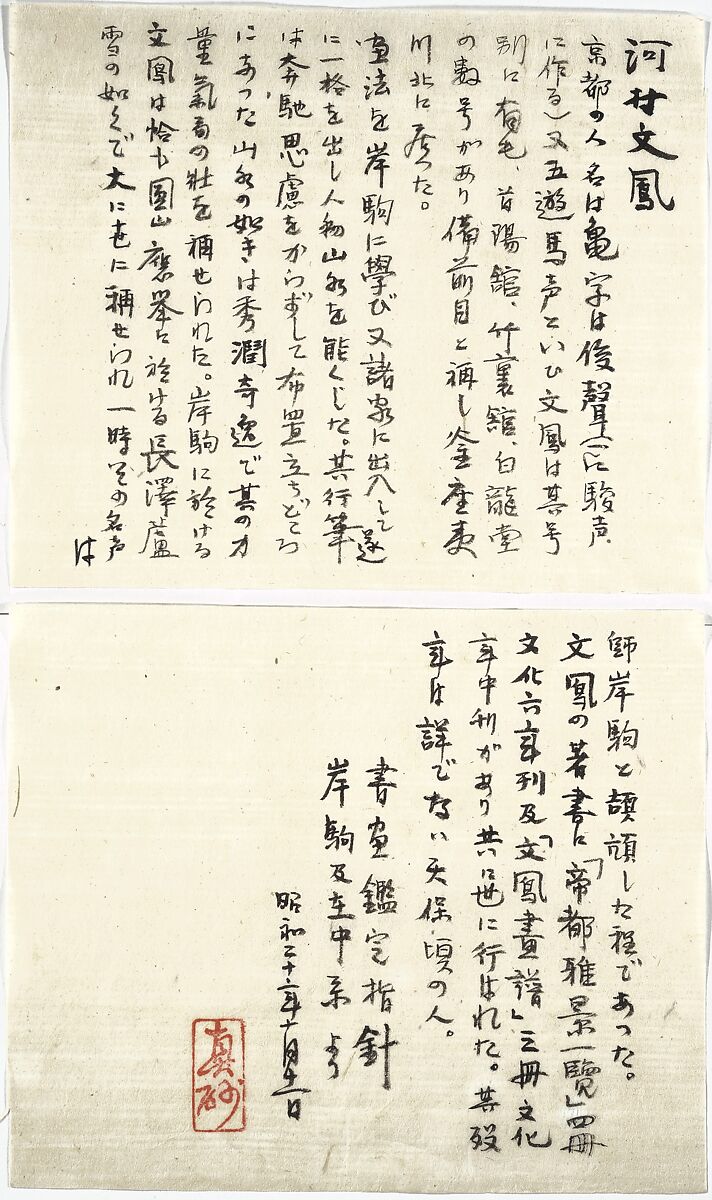 河村文鳳
京都の人 名は亀 字は俊聲(一に駿声
に作る)又五遊馬声といひ文鳳は其号
別に有毛、首陽館、竹裏館、白龍堂
の数号があり備前目と称し釜座夷
川北に居つた。
画法を岸駒に學び又諸家に出入して遂
に一格を出し人物山水を能くした。其行筆
は奔馳思慮をからずして布置立ちどころ
にあつた山水の如きは秀潤奇逸で其の力
量氣局の壮を称せられた。岸駒に於ける
文鳳は恰も圓山應挙に於ける長澤蘆
雪の如くで大に世に称せられ一時その名声
は
師岸駒と頡頏した程であつた。
文鳳の著書に「帝都雅景一覽」四冊
文化六年刊及「文鳳畫譜」三冊文化
年中刊があり共に世に行はれた。其歿
年は詳でない天保頃の人。
書画鑑定指針
岸駒及在中系より
昭和二十六年十月十一日
真砂